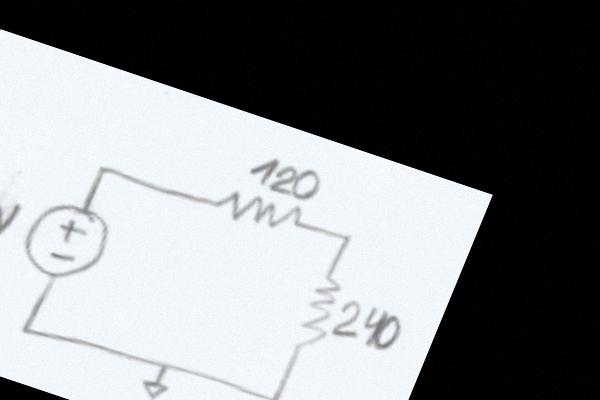 120
V
+
−
240